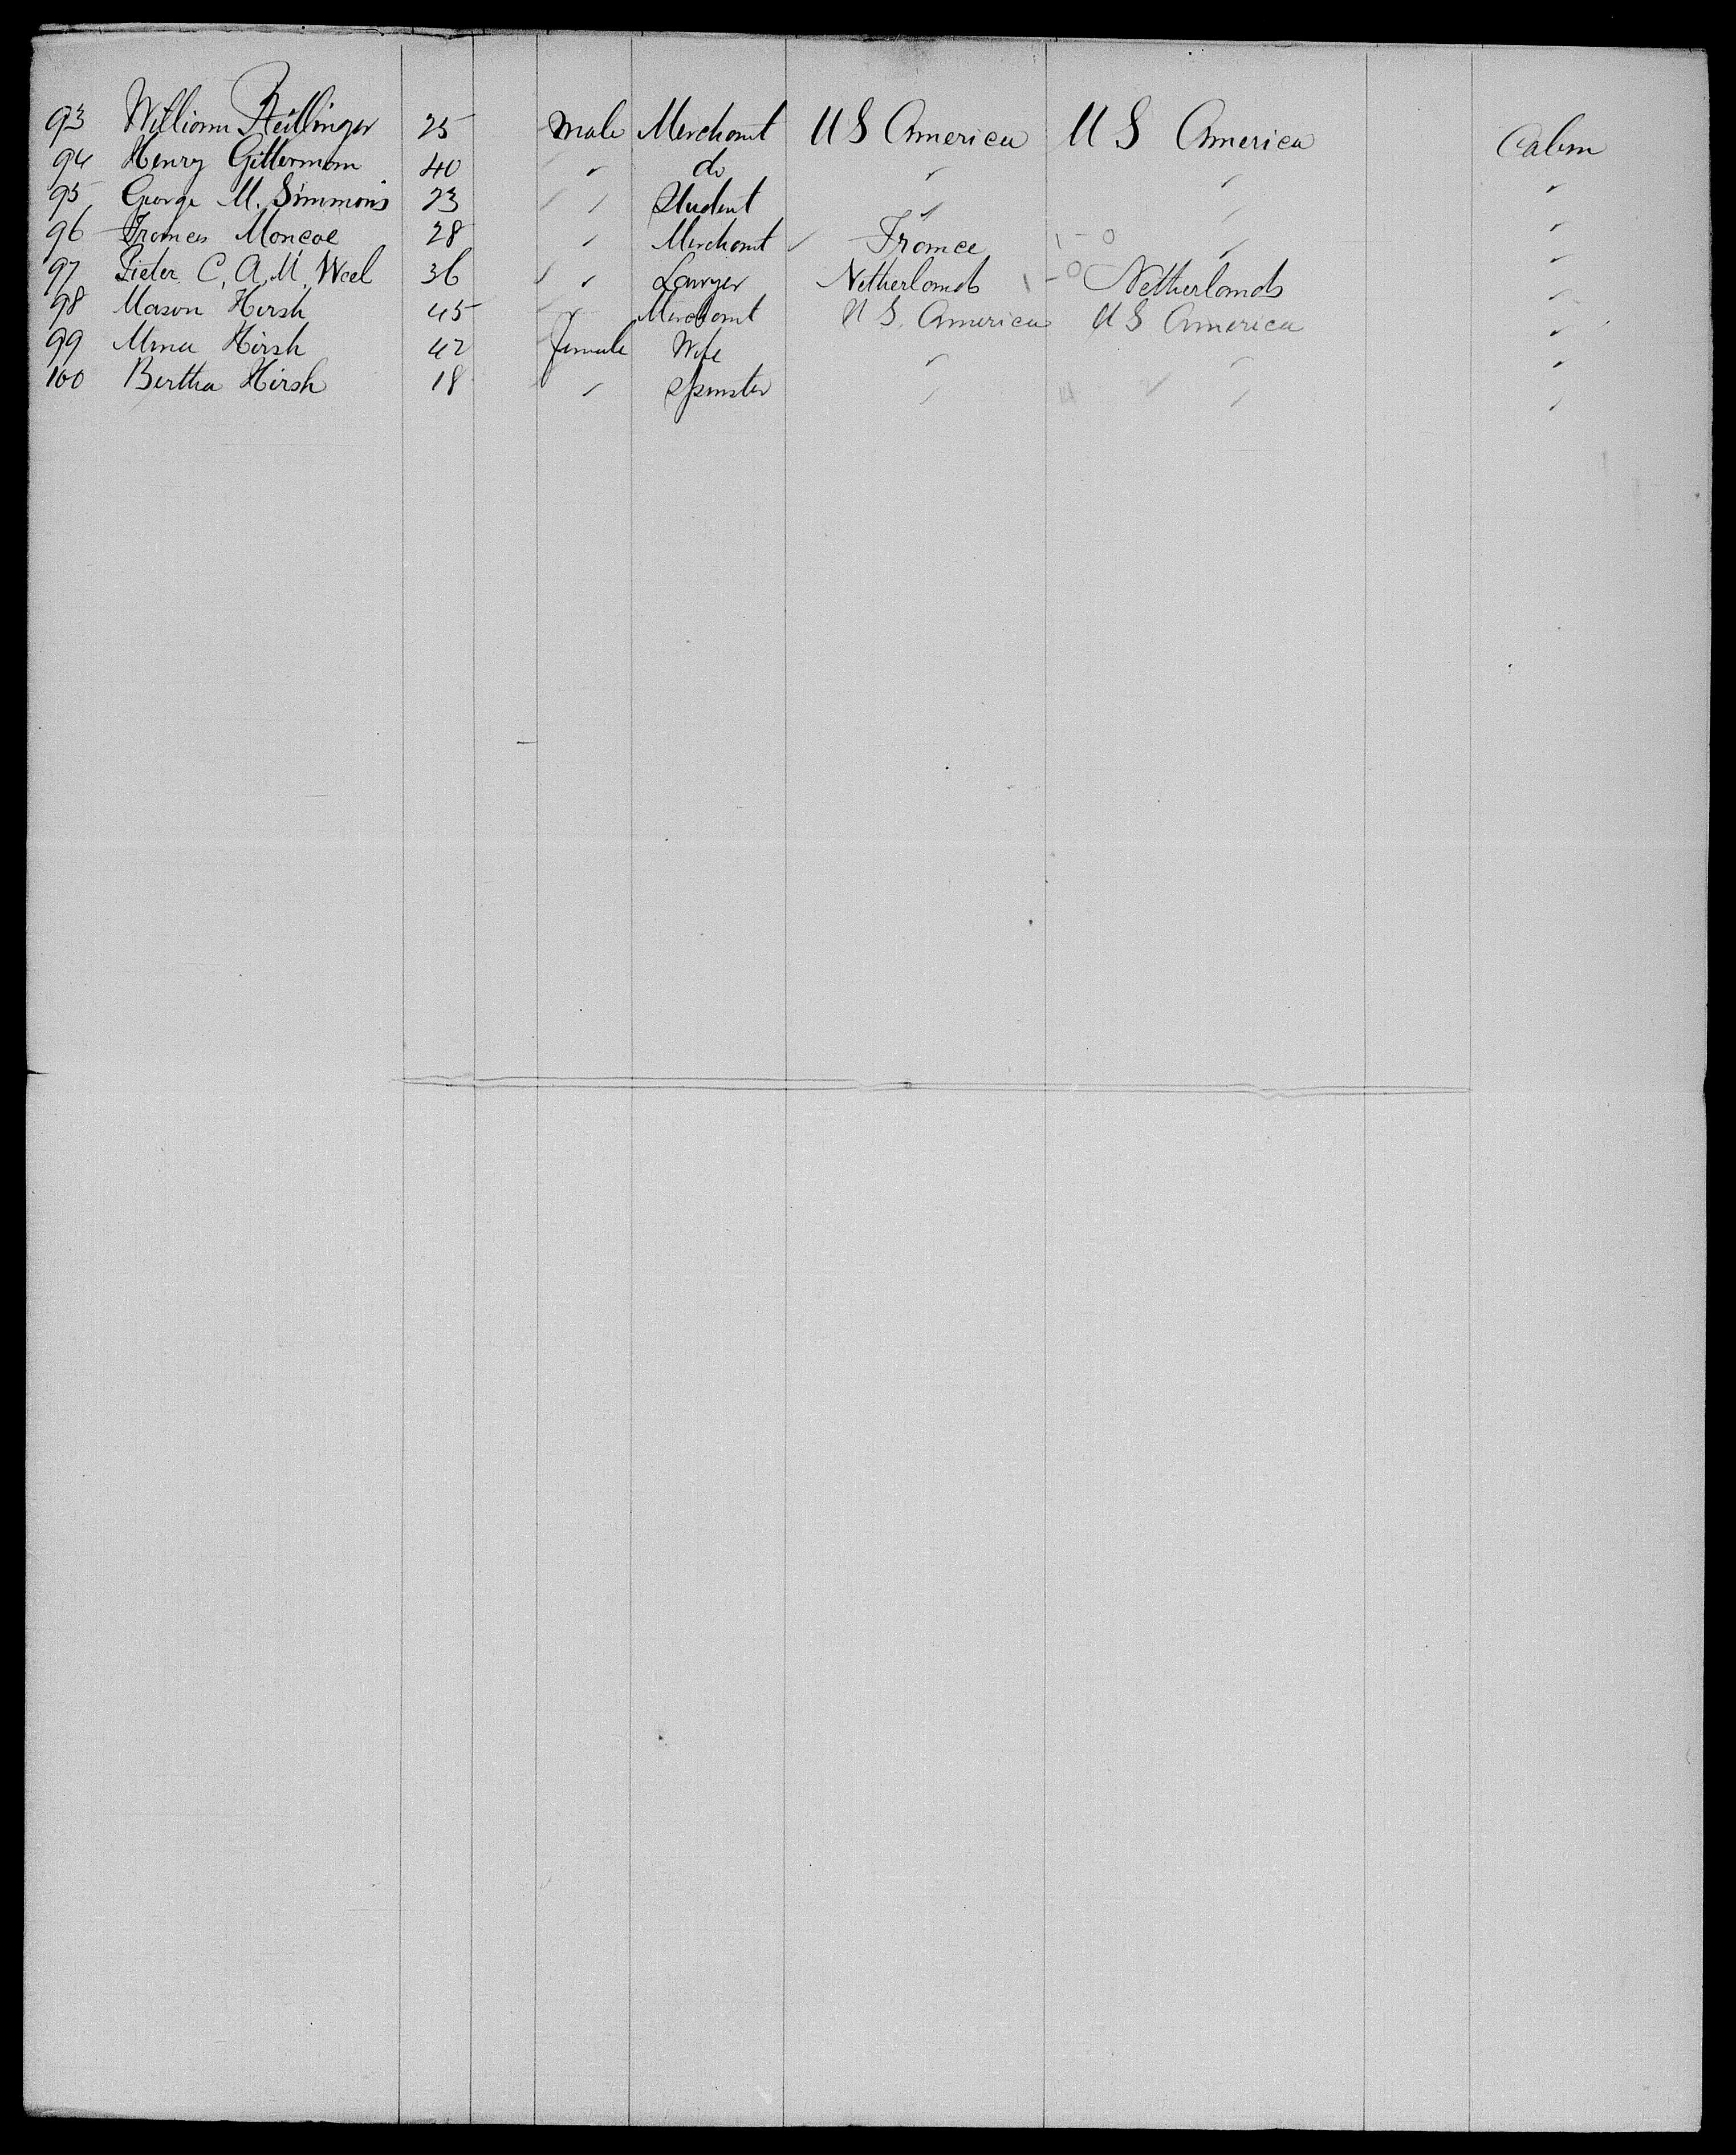 93 William Reitlinger 25 Male Merchant U S America U S America Cabin
94 Henry Gitterman 40 " do " " "
95 George M. Simmons 23 " Student " " "
96 Frances Moncae 28 " Merchant France " "
97 Pieter C. A. M. Weel 36 " Lawyer Netherlands Netherlands "
98 Mason Hirsh 45 " Merchant U S. America U S America "
99 Mina Hirsh 42 female Wife " " "
100 Bertha Hirsh 18 " Spinster " " "